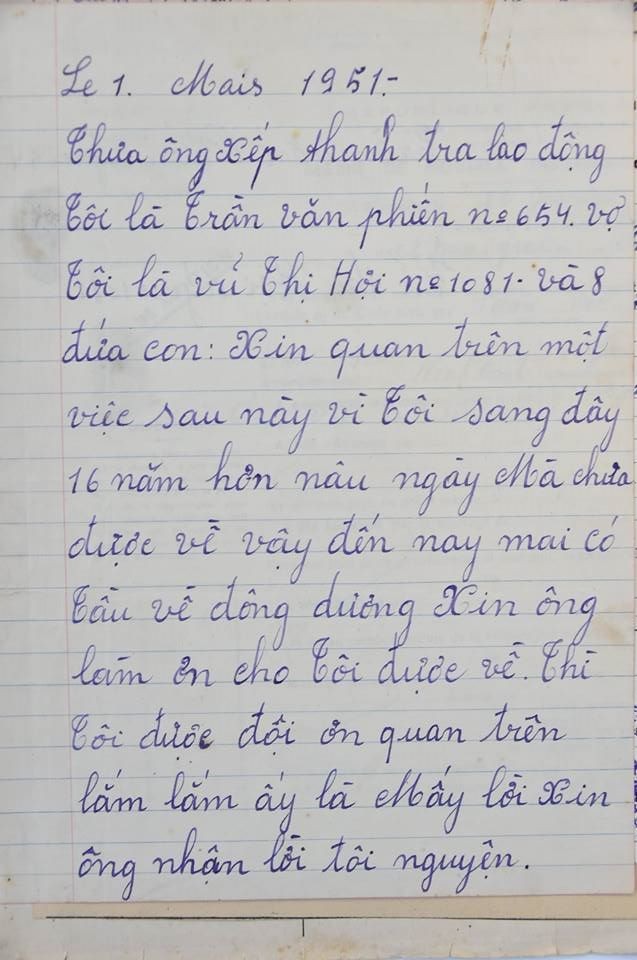 Le 1. Mais 1951.-
Thưa ông xếp thanh tra lao động
Tôi là Trần văn phiến nº 654. vợ
Tôi là vũ Thị Hợi nº 1081. và 8
đứa con: Xin quan trên một
việc sau này vì Tôi sang đây
16 năm hơn nâu ngày Mà chưa
được về vậy đến nay mai có
Tầu về đông dương Xin ông
làm ơn cho Tôi được về. Thì
Tôi được đội ơn quan trên
lắm lắm ấy là Mấy lời Xin
ông nhận lời tôi nguyện.